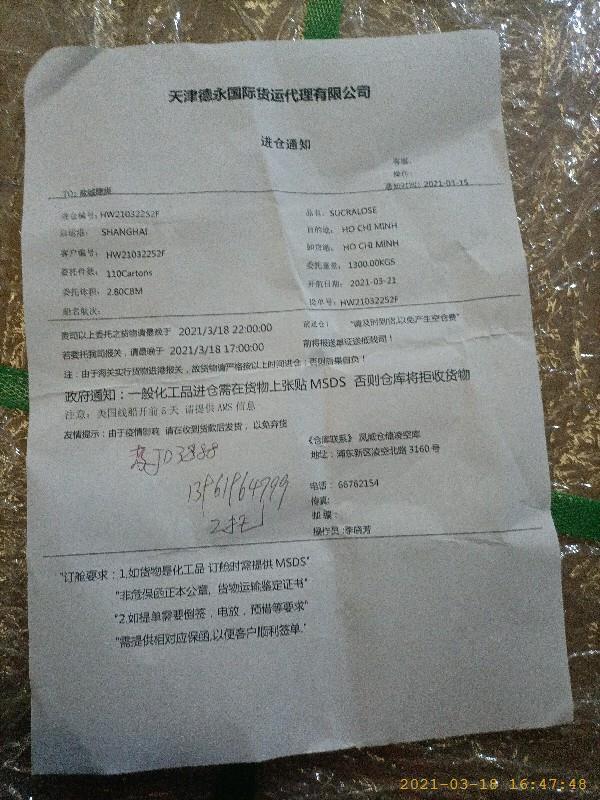 天津德永国际货运代理有限公司
进仓通知
客服:
操作:
TO:
通知时间: 2021-03-15
进仓编号: HW210322S2F
品名: SUCRALOSE
起运港: SHANGHAI
目的地: HO CHI MINH
卸货港: HO CHI MINH
客户编号: HW210322S2F
委托重量: 1300.00KGS
委托件数: 110Cartons
开航日期: 2021-03-21
委托体积: 2.80CBM
提单号: HW210322S2F
船名航次:
贵司以上委托之货物请最晚于 2021/3/18 22:00:00 前进仓! "请及时到货,以免产生空仓费"
若委托我司报关,请最晚于 2021/3/18 17:00:00 前将报送单证送抵我司!
注:由于海关实行货物进港报关,故货物请严格按以上时间进仓!否则后果自负!
政府通知:一般化工品进仓需在货物上张贴 MSDS 否则仓库将拒收货物
注意:美国线船开前5天 请提供 AMS 信息
友情提示:由于疫情影响 请在收到货款后发货,以免弃货
《仓库联系》 风威仓储凌空库
地址:浦东新区凌空北路 3160 号
J03888
13961964999
2托
电话: 66782154
传真:
邮编:
操作员:李晓芳
"订舱要求:1.如货物是化工品 订舱时需提供 MSDS"
"非危保函正本公章, 货物运输鉴定证书"
"2.如提单需要倒签,电放,预借等要求"
"需提供相对应保函,以便客户顺利签单."
2021-03-18 16:47:48